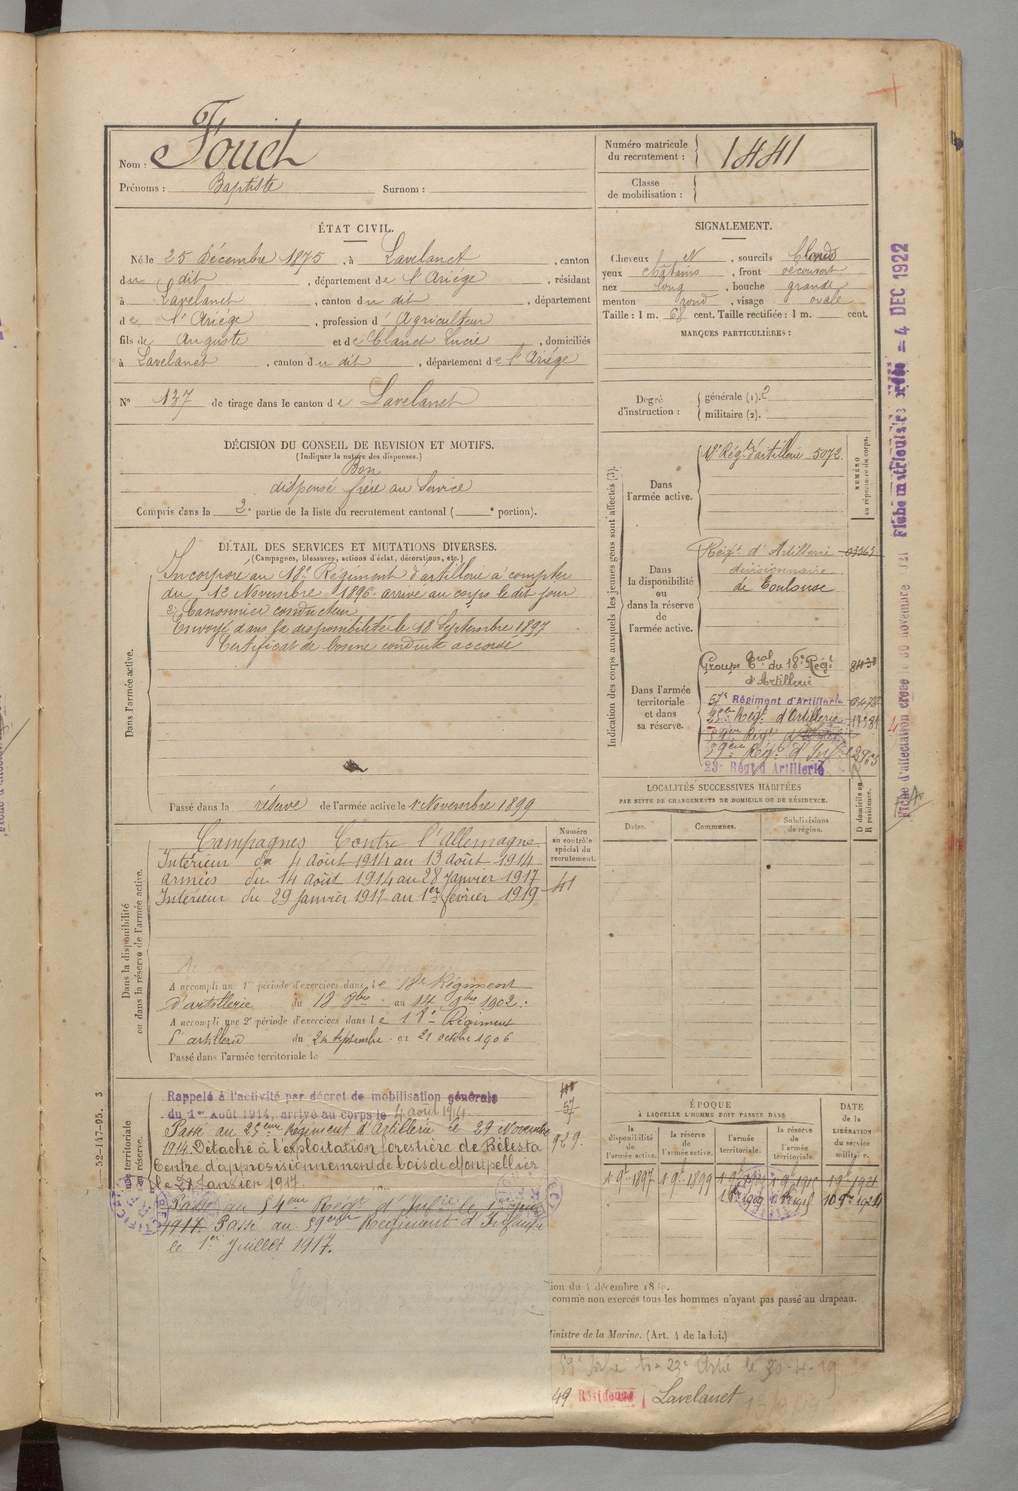 Nom : Fouet
Prénoms : Baptiste Surnom :
Numéro matricule
du recrutement : 1441
Classe
de mobilisation :
ÉTAT CIVIL.
Né le 25 Décembre 1875, à Lavelanet, canton
du dit, département de l'Ariége, résidant
à Lavelanet, canton du dit, département
de l'Ariége, profession d'Agriculteur
fils de Auguste et de Clanet Lucie, domiciliés
à Lavelanet, canton du dit, département de l'Ariége
N° 137 de tirage dans le canton de Lavelanet
SIGNALEMENT.
Cheveux N, sourcils blonds
yeux chatains, front découvert
nez long, bouche grande
menton rond, visage ovale
Taille : 1 m. 68 cent. Taille rectifiée : 1 m. cent.
MARQUES PARTICULIÈRES :
Degré
d'instruction :
générale (1). 2
militaire (2).
DÉCISION DU CONSEIL DE REVISION ET MOTIFS.
(Indiquer la nature des dispenses.)
Bon
dispensé frère au Service
Compris dans la 2e partie de la liste du recrutement cantonal ( e portion).
DÉTAIL DES SERVICES ET MUTATIONS DIVERSES.
(Campagnes, blessures, actions d'éclat, décorations, etc.)
Dans l'armée active.
Incorporé au 18e Régiment d'artillerie à compter
du 12 Novembre 1896 arrivé au corps le dit jour
2e Canonnier conducteur
Envoyé dans la disponibilité le 18 Septembre 1897
Certificat de bonne conduite accordé
Passé dans la réserve de l'armée active le 1er Novembre 1899
Indication des corps auxquels les jeunes gens sont affectés (3).
NUMÉRO
au répertoire du corps.
Dans
l'armée active.
18e Régt d'artillerie 5072
Dans
la disponibilité
ou
dans la réserve
de
l'armée active.
Régt d'Artillerie 03363
divisionnaire
de Toulouse
Dans l'armée
territoriale
et dans
sa réserve.
Groupe Tral du 18e Régt
d'Artillerie
57e Régiment d'Artillerie
Régt d'Artillerie
59ème Régt d'Infie
23e Régt d'Artillerie
LOCALITÉS SUCCESSIVES HABITÉES
PAR SUITE DE CHANGEMENTS DE DOMICILE OU DE RÉSIDENCE.
D domicile ou
R résidence.
Dates. Communes. Subdivisions
de région.
Dans la disponibilité
ou dans la réserve de l'armée active.
Numéro
au contrôle
spécial du
recrutement.
41
Campagnes Contre l'Allemagne
Intérieur du 4 août 1914 au 13 août 1914
armées du 14 août 1914 au 28 janvier 1917
Intérieur du 29 janvier 1917 au 1er février 1919
A accompli une 1re période d'exercices dans le 18e Régiment
d'artillerie du 18 8bre au 14 9bre 1902.
A accompli une 2e période d'exercices dans le 18e Régiment
d'artillerie du 24 septembre au 21 octobre 1906
Passé dans l'armée territoriale le
Rappelé à l'activité par décret de mobilisation générale
du 1er Août 1914, arrivé au corps le 4 août 1914
Passé au 25ème Régiment d'Artillerie le 29 Novembre
1914. Détaché à l'exploitation forestière de Bélesta
Centre d'approvisionnement de bois de Montpellier
le 21 Janvier 1917.
Passé au 84ème Régt d'Infie le
1917. Passé au 59ème Régiment d'Infanterie
le 1er Juillet 1917.
929.
52-147-95. 3
ÉPOQUE
À LAQUELLE L'HOMME DOIT PASSER DANS
DATE
de la
LIBÉRATION
du service
militaire.
la
disponibilité
de
l'armée active.
la réserve
de
l'armée active.
l'armée
territoriale.
la réserve
de
l'armée
territoriale.
1 9bre 1897 1 9bre 1899
comme non exercés tous les hommes n'ayant pas passé au drapeau.
Ministre de la Marine. (Art. 4 de la loi.)
59e Infie le 30-4-19
49 Résidence Lavelanet
Fiche matriculaire créée = 4 DEC 1922
Fiche d'affectation créée le 30 novembre